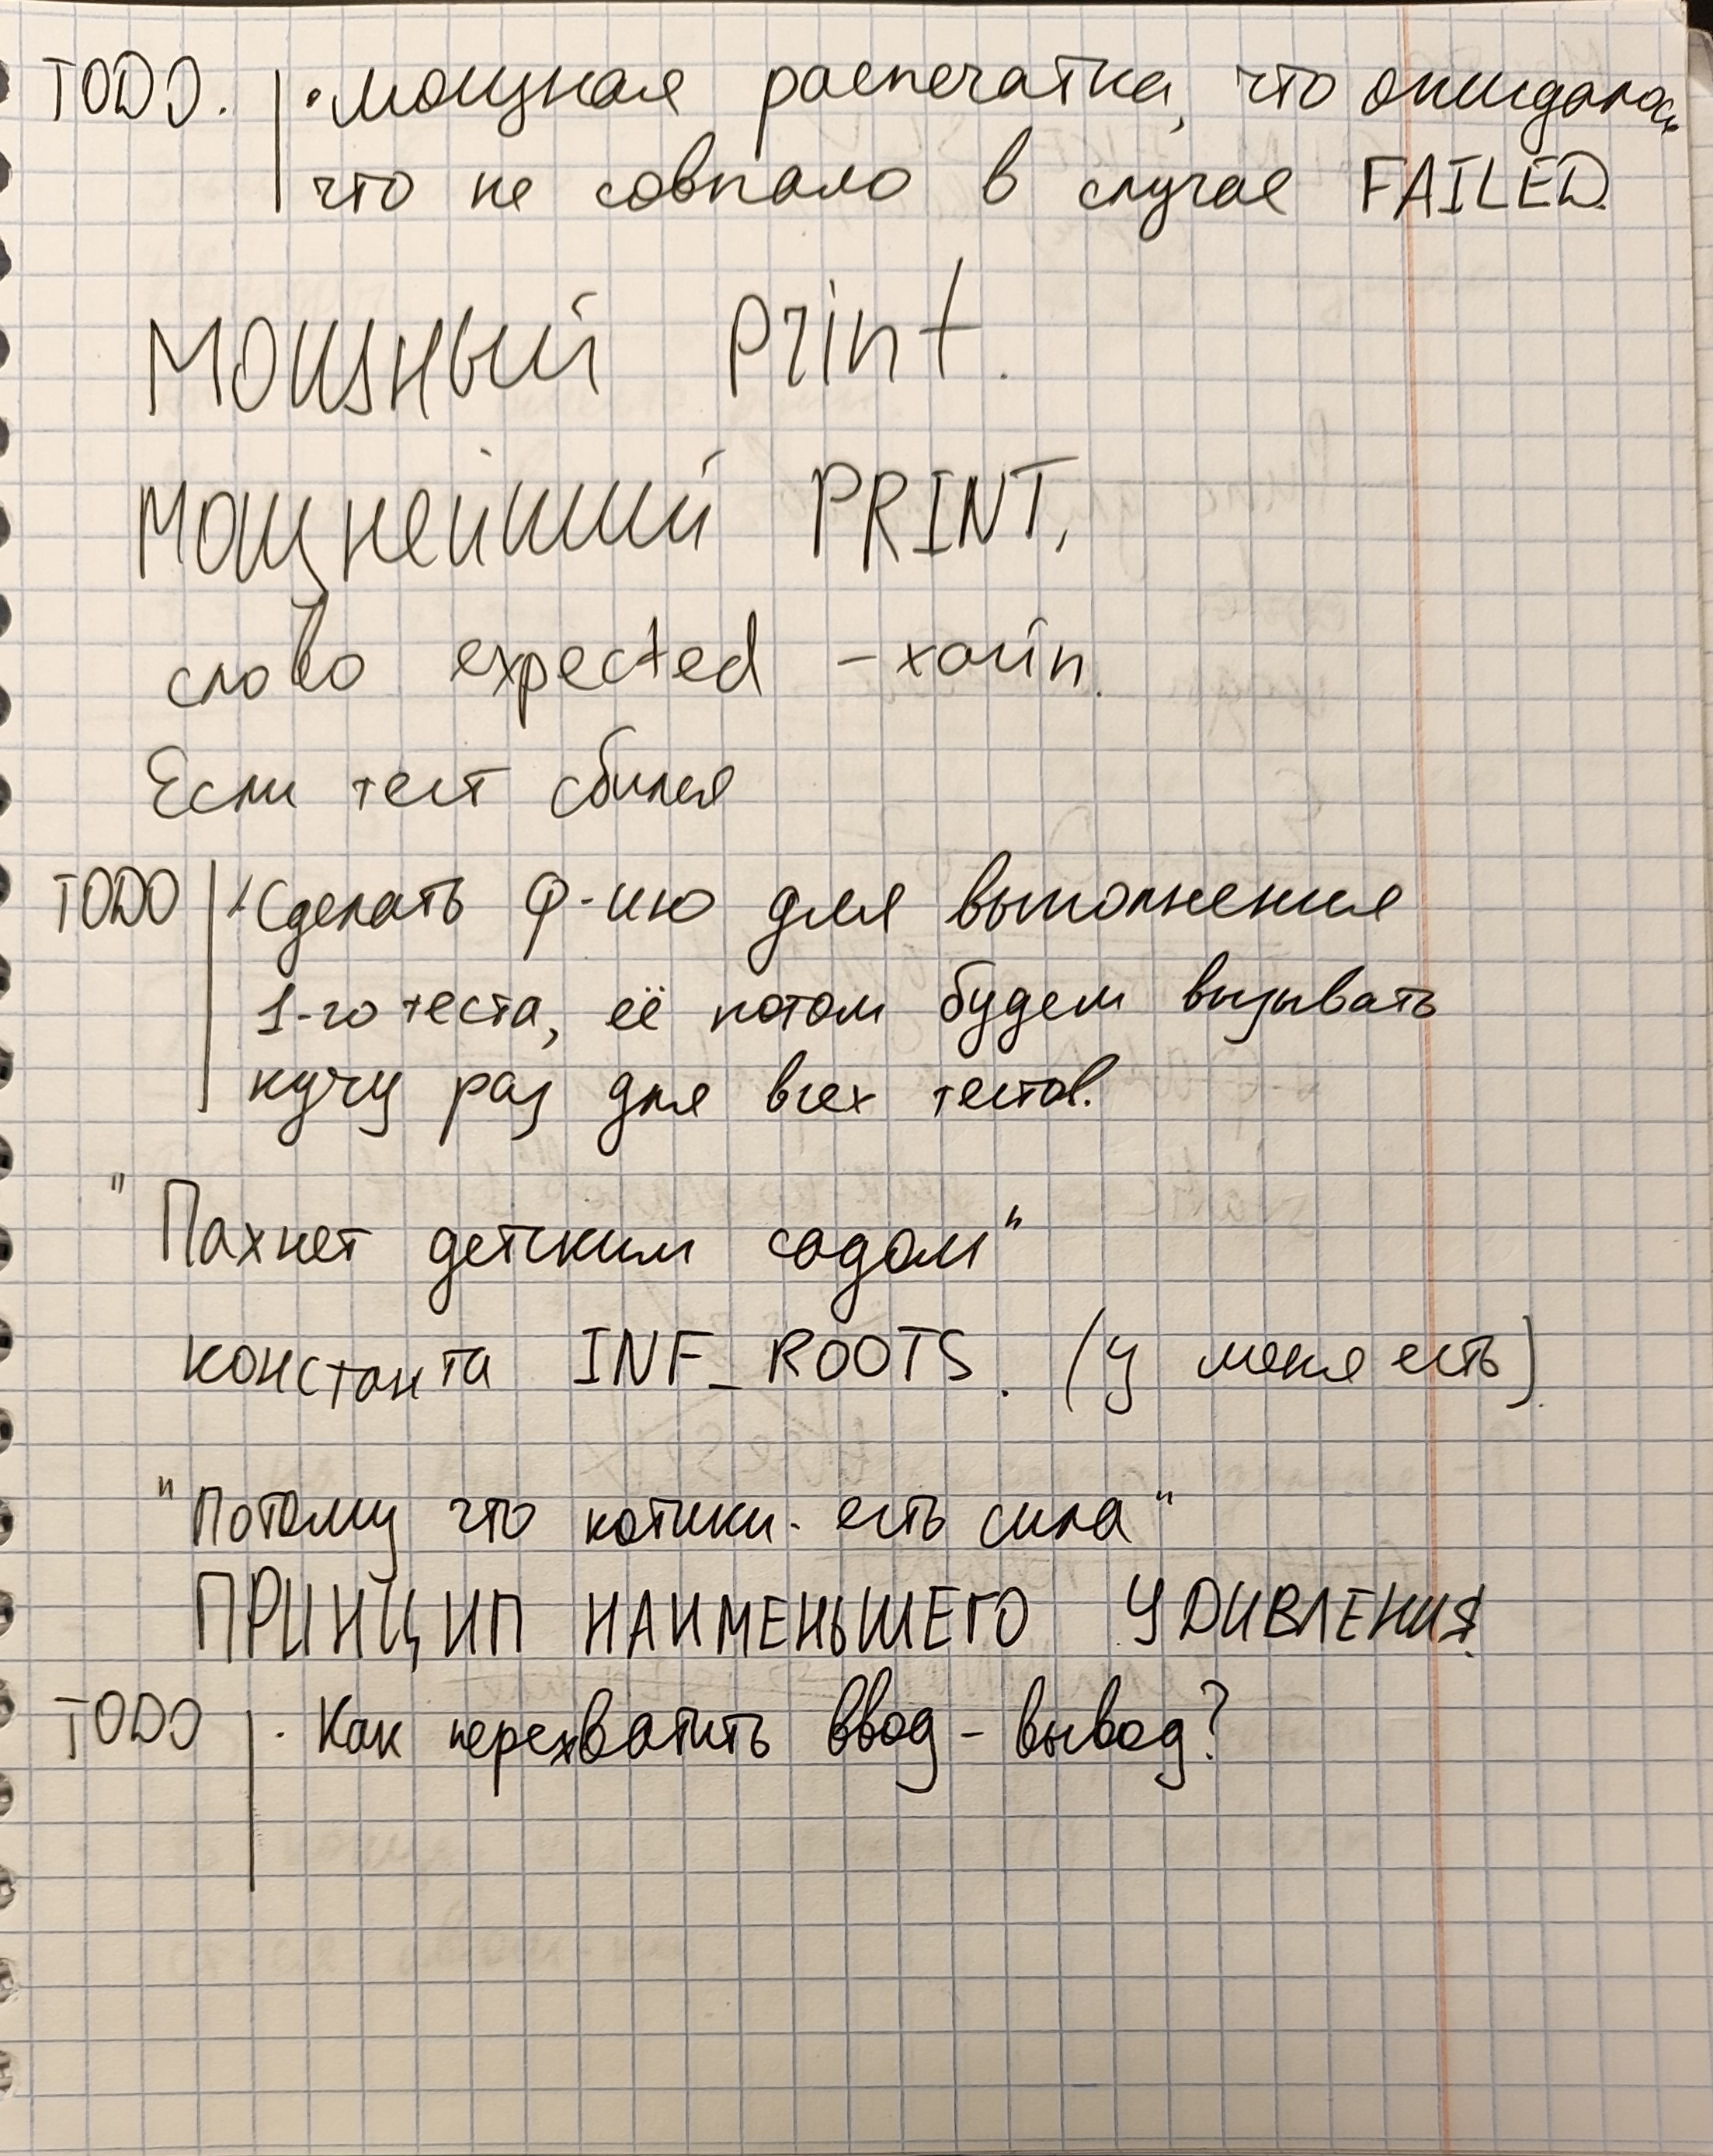 TODO. | • мощная распечатка, что ожидалось
что не совпало в случае FAILED.
Мощный print.
Мощнейший PRINT.
слово expected - хайп.
Если тест сбился
TODO | • Сделать ф-ию для выполнения
1-го теста, её потом будем вызывать
кучу раз для всех тестов.
"Пахнет детским садом"
константа INF_ROOTS. (у меня есть).
"Потому что котики - есть сила"
ПРИНЦИП НАИМЕНЬШЕГО УДИВЛЕНИЯ.
TODO | • Как перехватить ввод - вывод?